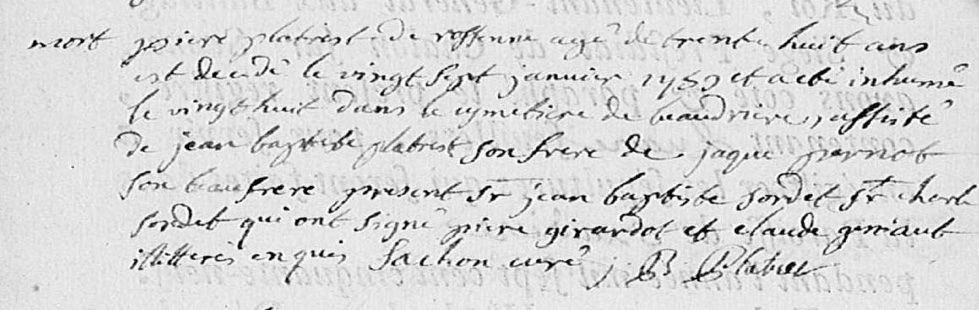 mort piere platret de rossenne agé de trente huit ans
est decedé le vingt sept janvier 1759 et a eté inhumé
le vingt huit dans le cymetiere de beaudriere, assisté
de jean baptiste platret son frere de jaque pernot
son beaufrere present sr jean baptiste sordet sr charle
sordet qui ont signé piere girardot et claude geniaut
illitteres enquis Sachon curé J B Platret